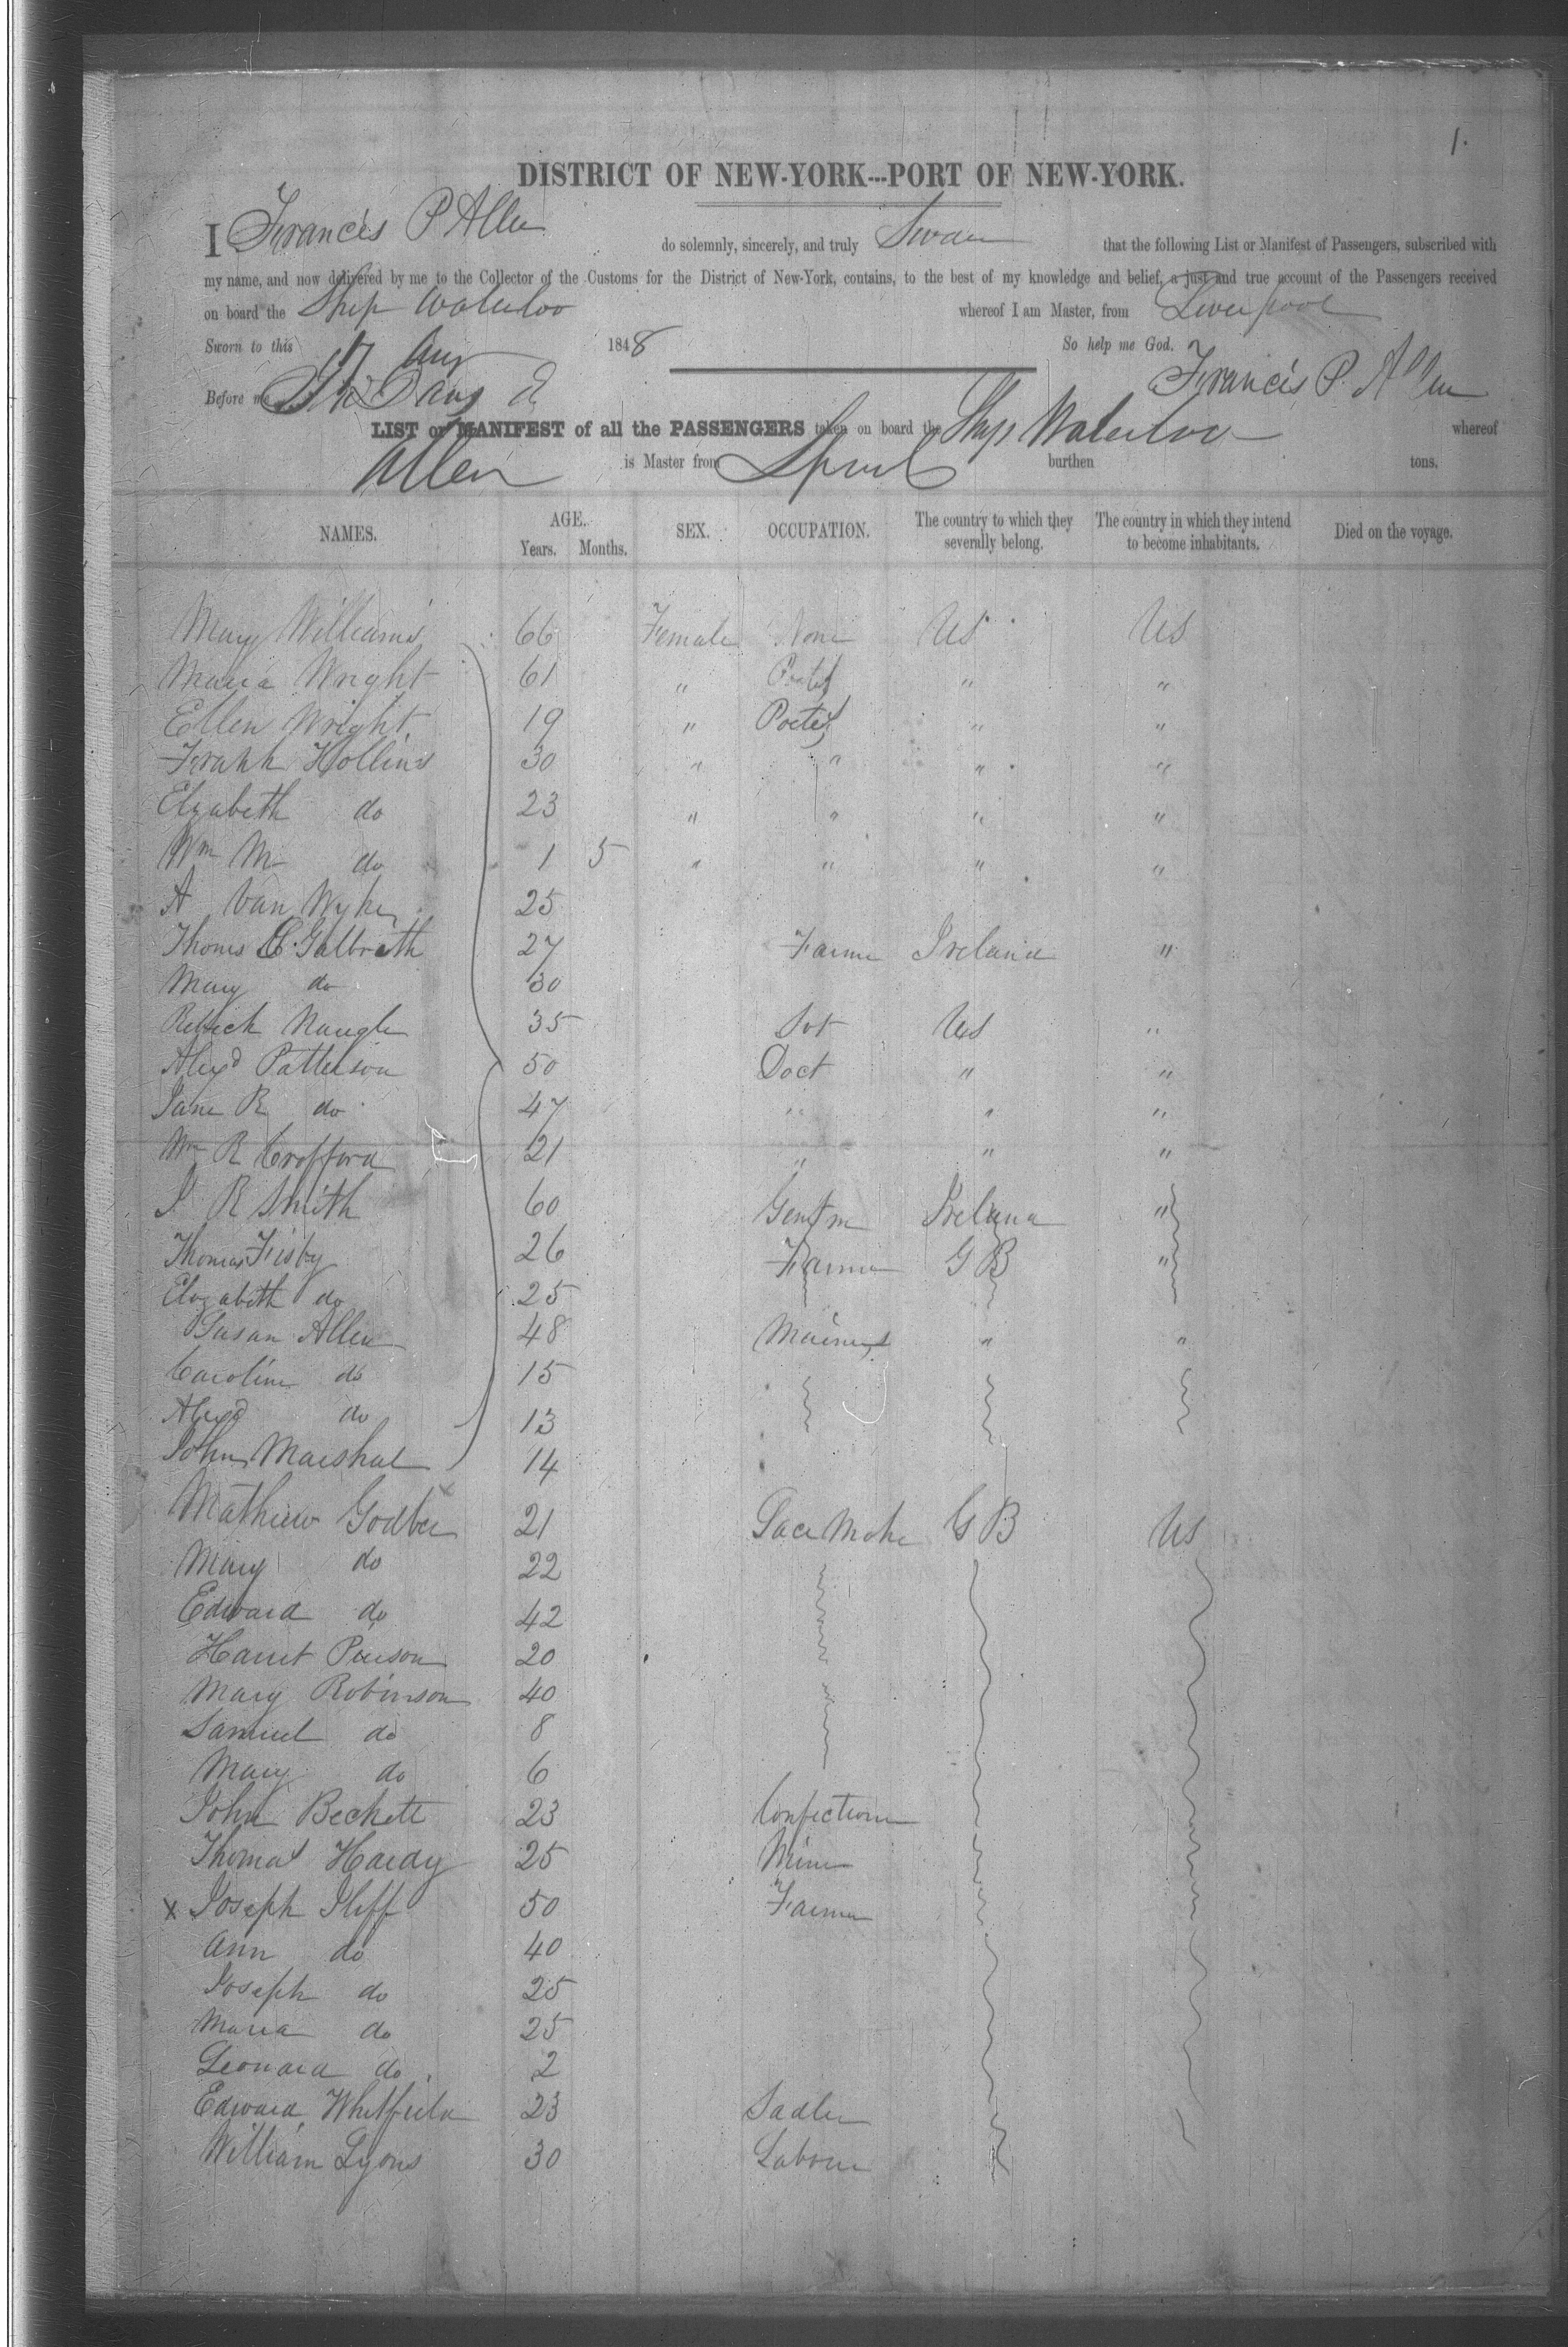 1.
DISTRICT OF NEW-YORK---PORT OF NEW-YORK.
I Francis P Allen do solemnly, sincerely, and truly Swear that the following List or Manifest of Passengers, subscribed with
my name, and now delivered by me to the Collector of the Customs for the District of New-York, contains, to the best of my knowledge and belief, a just and true account of the Passengers received
on board the Ship Waterloo whereof I am Master, from Liverpool
Sworn to this 17 Aug 1848 So help me God.
Before me Francis P. Allen
LIST or MANIFEST of all the PASSENGERS taken on board the Ship Waterloo whereof
Allen is Master from Lpool burthen tons.
NAMES. AGE. Years. Months. SEX. OCCUPATION. The country to which they severally belong. The country in which they intend to become inhabitants. Died on the voyage.
Mary Williams 66 Female None US US
Maria Wright 61 " " "
Ellen Wright 19 " " "
Frank Hollins 30 " " " "
Elizabeth do 23 " " " "
Wm M do 1 5 " " " "
A Van Wyke 25
Thoms Galbrath 27 Farmer Ireland "
Mary do 30
Naugle 35 US "
Alexd Patterson 50 Doct " "
Jane R do 47 " " "
Wm R Crofford 21 " " "
J R Smith 60 Gentm Ireland "
Thomas Fisby 26 Farmer G B "
Elizabeth do 25
Susan Allen 48 " "
Caroline do 15
Alexd do 13
John Marshal 14
Mathew Godber 21 Lace Make G B US
Mary do 22
Edward do 42
Harriet Pierson 20
Mary Robinson 40
Samuel do 8
Mary do 6
John Beckett 23 Confectioner
Thomas Hardy 25 Miner
x Joseph Iliff 50 Farmer
Ann do 40
Joseph do 25
Maria do 25
Leonard do 2
Edward Whitfield 23 Sadler
William Lyons 30 Labourer